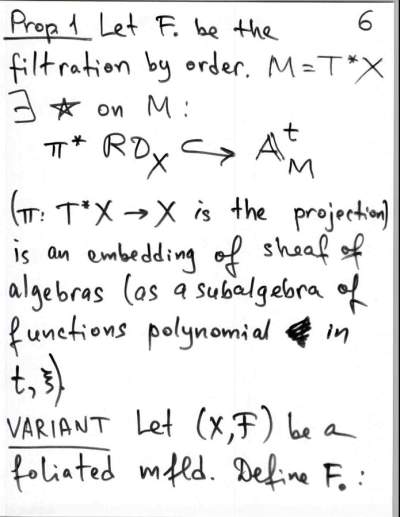 Prop 1 Let F. be the 6
filtration by order. M=T*X
∃ ★ on M:
π* RD_X ↪ A^t_M
(π: T*X → X is the projection)
is an embedding of sheaf of
algebras (as a subalgebra of
functions polynomial in
t, ξ).
VARIANT Let (X,F) be a
foliated mfld. Define F.: